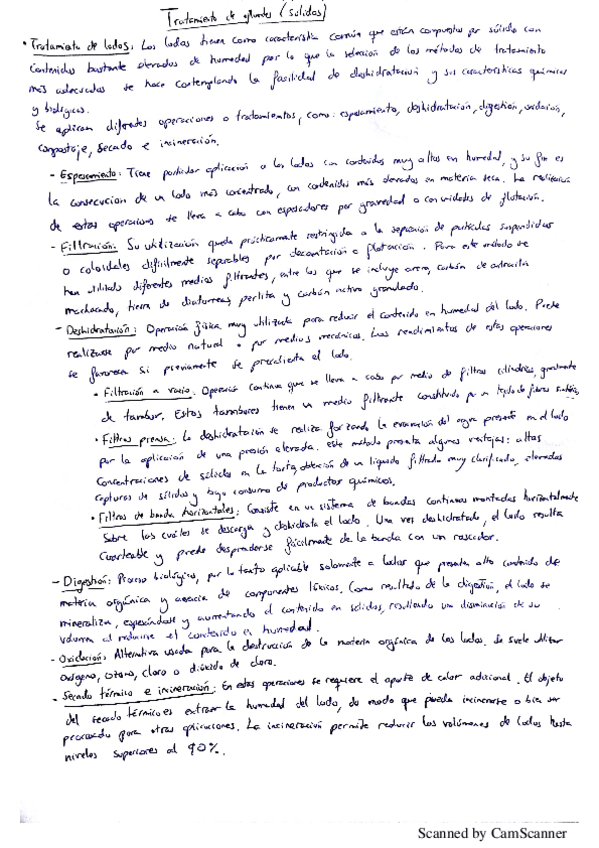 Tratamiento de efluentes (sólidos)
• Tratamiento de lodos: Los lodos tienen como característica común que están compuestos por sólido con
contenidos bastante elevados de humedad por lo que la selección de los métodos de tratamiento
más adecuados se hace contemplando la facilidad de deshidratación y sus características químicas
y biológicas.
Se aplican diferentes operaciones o tratamientos, como: espesamiento, deshidratación, digestión, oxidación,
compostaje, secado e incineración.
- Espesamiento: Tiene particular aplicación a los lodos con contenidos muy altos en humedad, y su fin es
la consecución de un lodo más concentrado, con contenidos más elevados en materia seca. La realización
de estas operaciones se lleva a cabo con espesadores por gravedad o con unidades de flotación.
- Filtración: Su utilización queda prácticamente restringida a la separación de partículas suspendidas
o coloidales difícilmente separables por decantación o flotación. Para este método se
han utilizado diferentes medios filtrantes, entre los que se incluye arena, carbón de antracita
machacado, tierra de diatomeas, perlita y carbón activo granulado.
- Deshidratación: Operación física muy utilizada para reducir el contenido en humedad del lodo. Puede
realizarse por medio natural o por medios mecánicos. Los rendimientos de estas operaciones
se favorecen si previamente se precalienta el lodo.
• Filtración a vacío: Operación continua que se lleva a cabo por medio de filtros cilíndricos, generalmente
de tambor. Estos tambores tienen un medio filtrante constituido por un tejido de fibras sintéticas,
• Filtros prensa: La deshidratación se realiza forzando la evacuación del agua presente en el lodo
por la aplicación de una presión elevada. este método presenta algunas ventajas: altas
concentraciones de sólidos en la torta, obtención de un líquido filtrado muy clarificado, elevadas
capturas de sólidos y bajo consumo de productos químicos.
• Filtros de banda horizontales: Consiste en un sistema de bandas continuas montadas horizontalmente
sobre las cuales se descarga y deshidrata el lodo. Una vez deshidratado, el lodo resulta
cuarteable y puede desprenderse fácilmente de la banda con un rascador.
- Digestión: Proceso biológico, por lo tanto aplicable solamente a lodos que presenta alto contenido de
materia orgánica y ausencia de componentes tóxicos. Como resultado de la digestión, el lodo se
mineraliza, espesándose y aumentando el contenido en sólidos, resultando una disminución de su
volumen al reducirse el contenido en humedad.
- Oxidación: Alternativa usada para la destrucción de la materia orgánica de los lodos. Se suele utilizar
oxígeno, ozono, cloro o dióxido de cloro.
- Secado térmico e incineración: En estas operaciones se requiere el aporte de calor adicional. El objeto
del secado térmico es extraer la humedad del lodo, de modo que pueda incinerarse o bien ser
procesado para otras aplicaciones. La incineración permite reducir los volúmenes de lodos hasta
niveles superiores al 90%.
Scanned by CamScanner